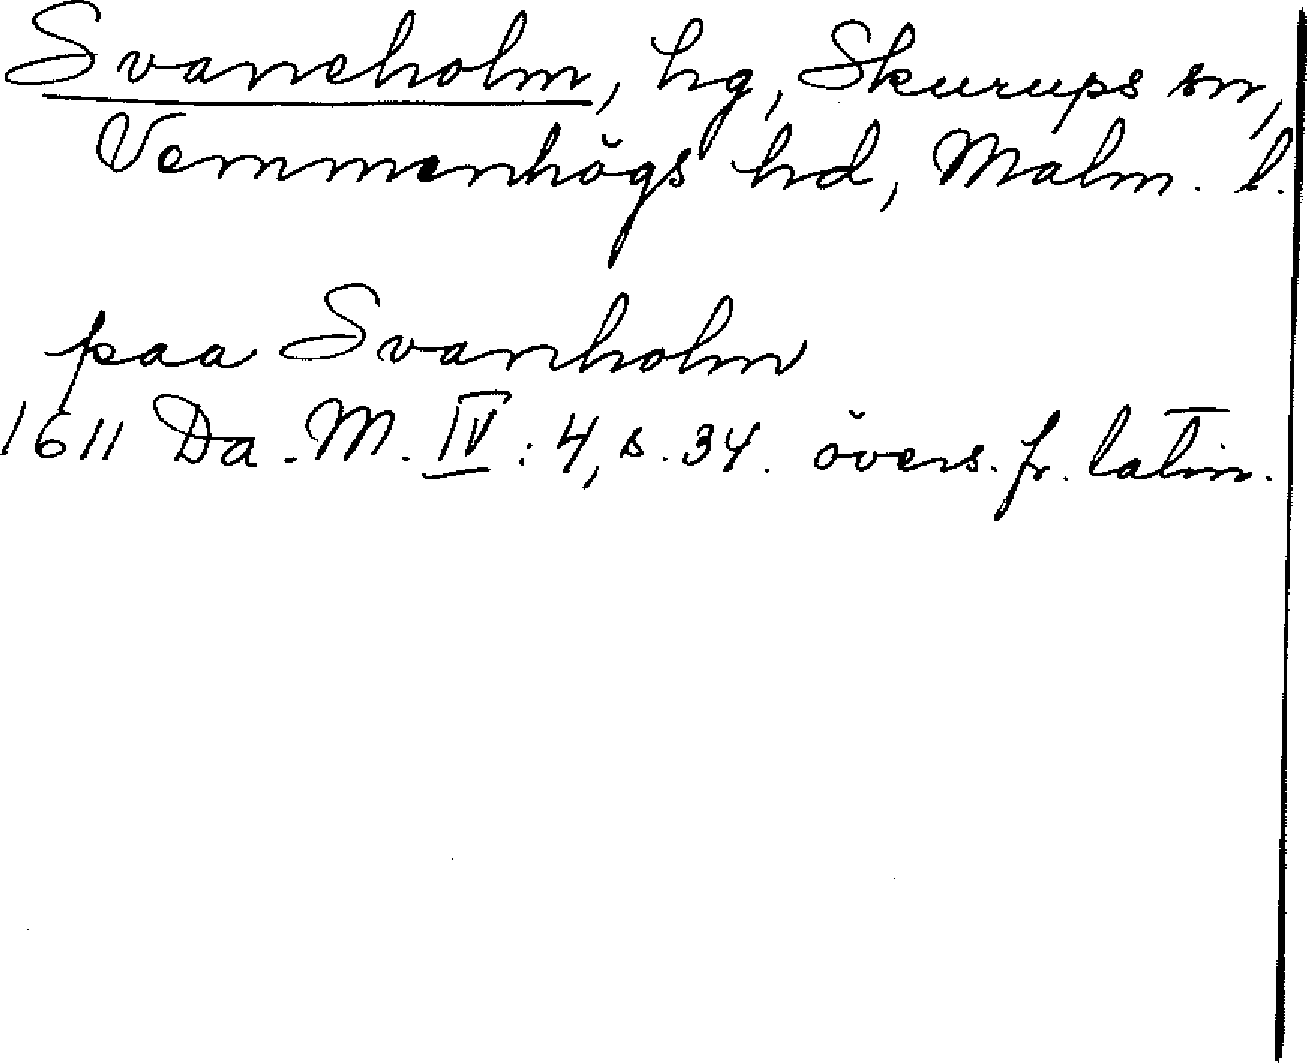 Svaneholm, hg, Skurups sn,
Vemmenhögs hd, Malm. l.
paa Svanholm
1611 Da. M. IV: 4, s. 34. övers. fr. latin.